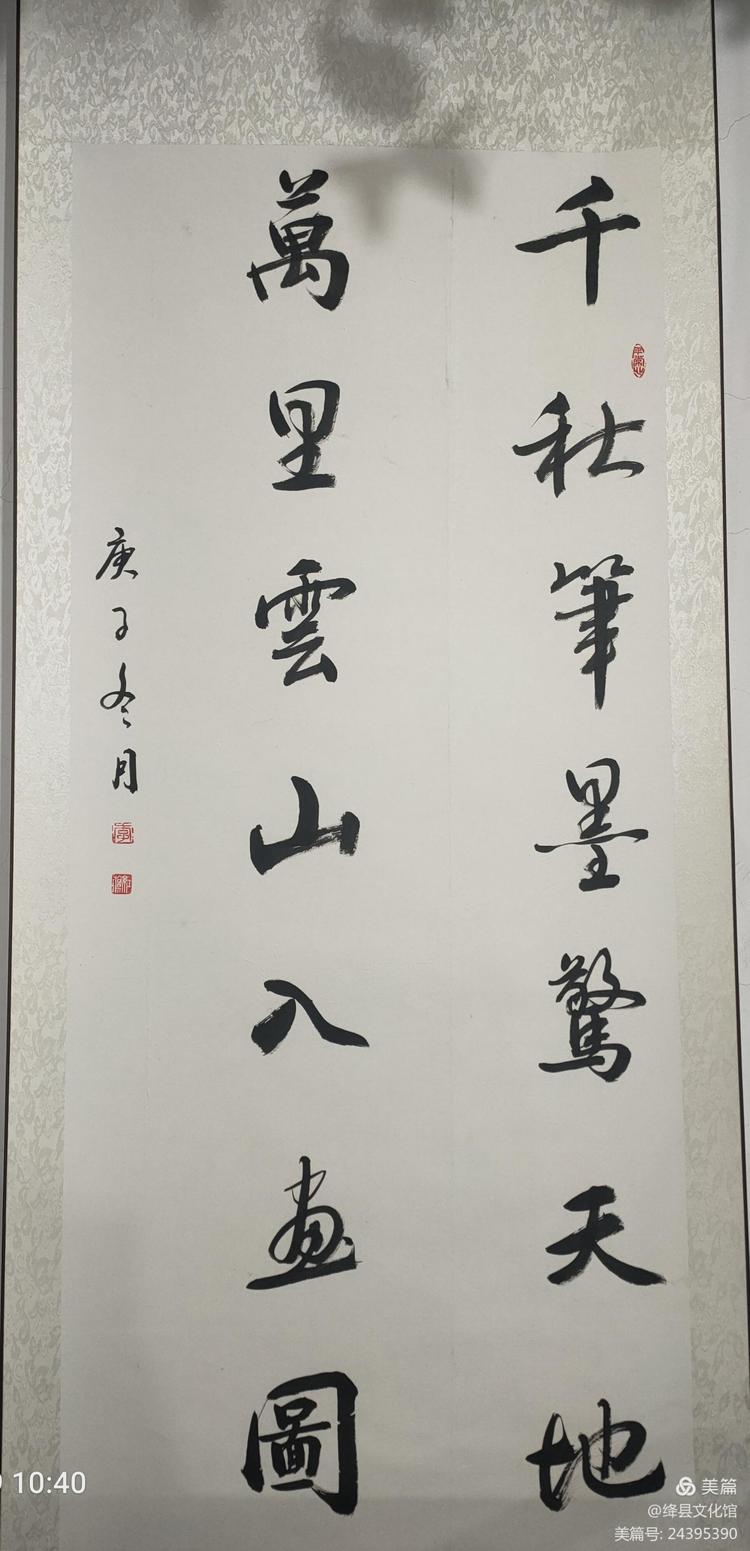 千秋筆墨驚天地
萬里雲山入畫圖
庚子冬月
10:40
美篇
@绛县文化馆
美篇号: 24395390